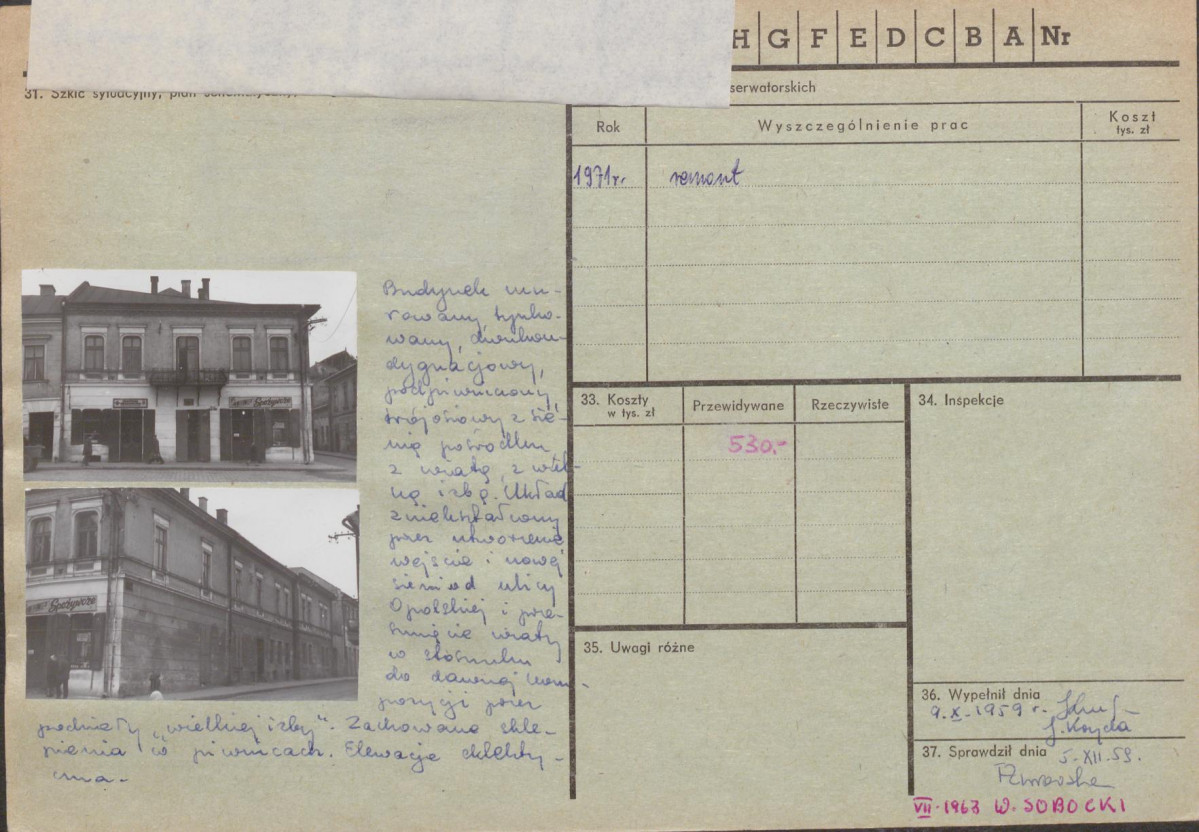 H G F E D C B A Nr
31. Szkic sytuacyjny, plan schematyczny,
serwatorskich
Rok
Wyszczególnienie prac
Koszt
tys. zł
1971r. remont
Budynek mu-
rowany, tynko-
wany, dwukon-
dygnacjowy,
podpiwniczony,
trójosiowy z sie-
nią pośrodku,
z wiatą, z wiel-
ką izbą. Układ
zniekształcony
przez utworzenie
wejście i nowej
sieni od ulicy
Opolskiej i prze-
sunięcie wiaty
w stosunku
do dawnej kom-
pozycji przez
podział "wielkiej izby". Zachowane skle-
pienia w piwnicach. Elewacje eklekty-
czna.
Spożywcze
Spożywcze
33. Koszty
w tys. zł
Przewidywane
Rzeczywiste
530.-
34. Inspekcje
35. Uwagi różne
36. Wypełnił dnia
9.X.1959 r.
37. Sprawdził dnia
5.XII.59.
VII.1963 W. SOBOCKI